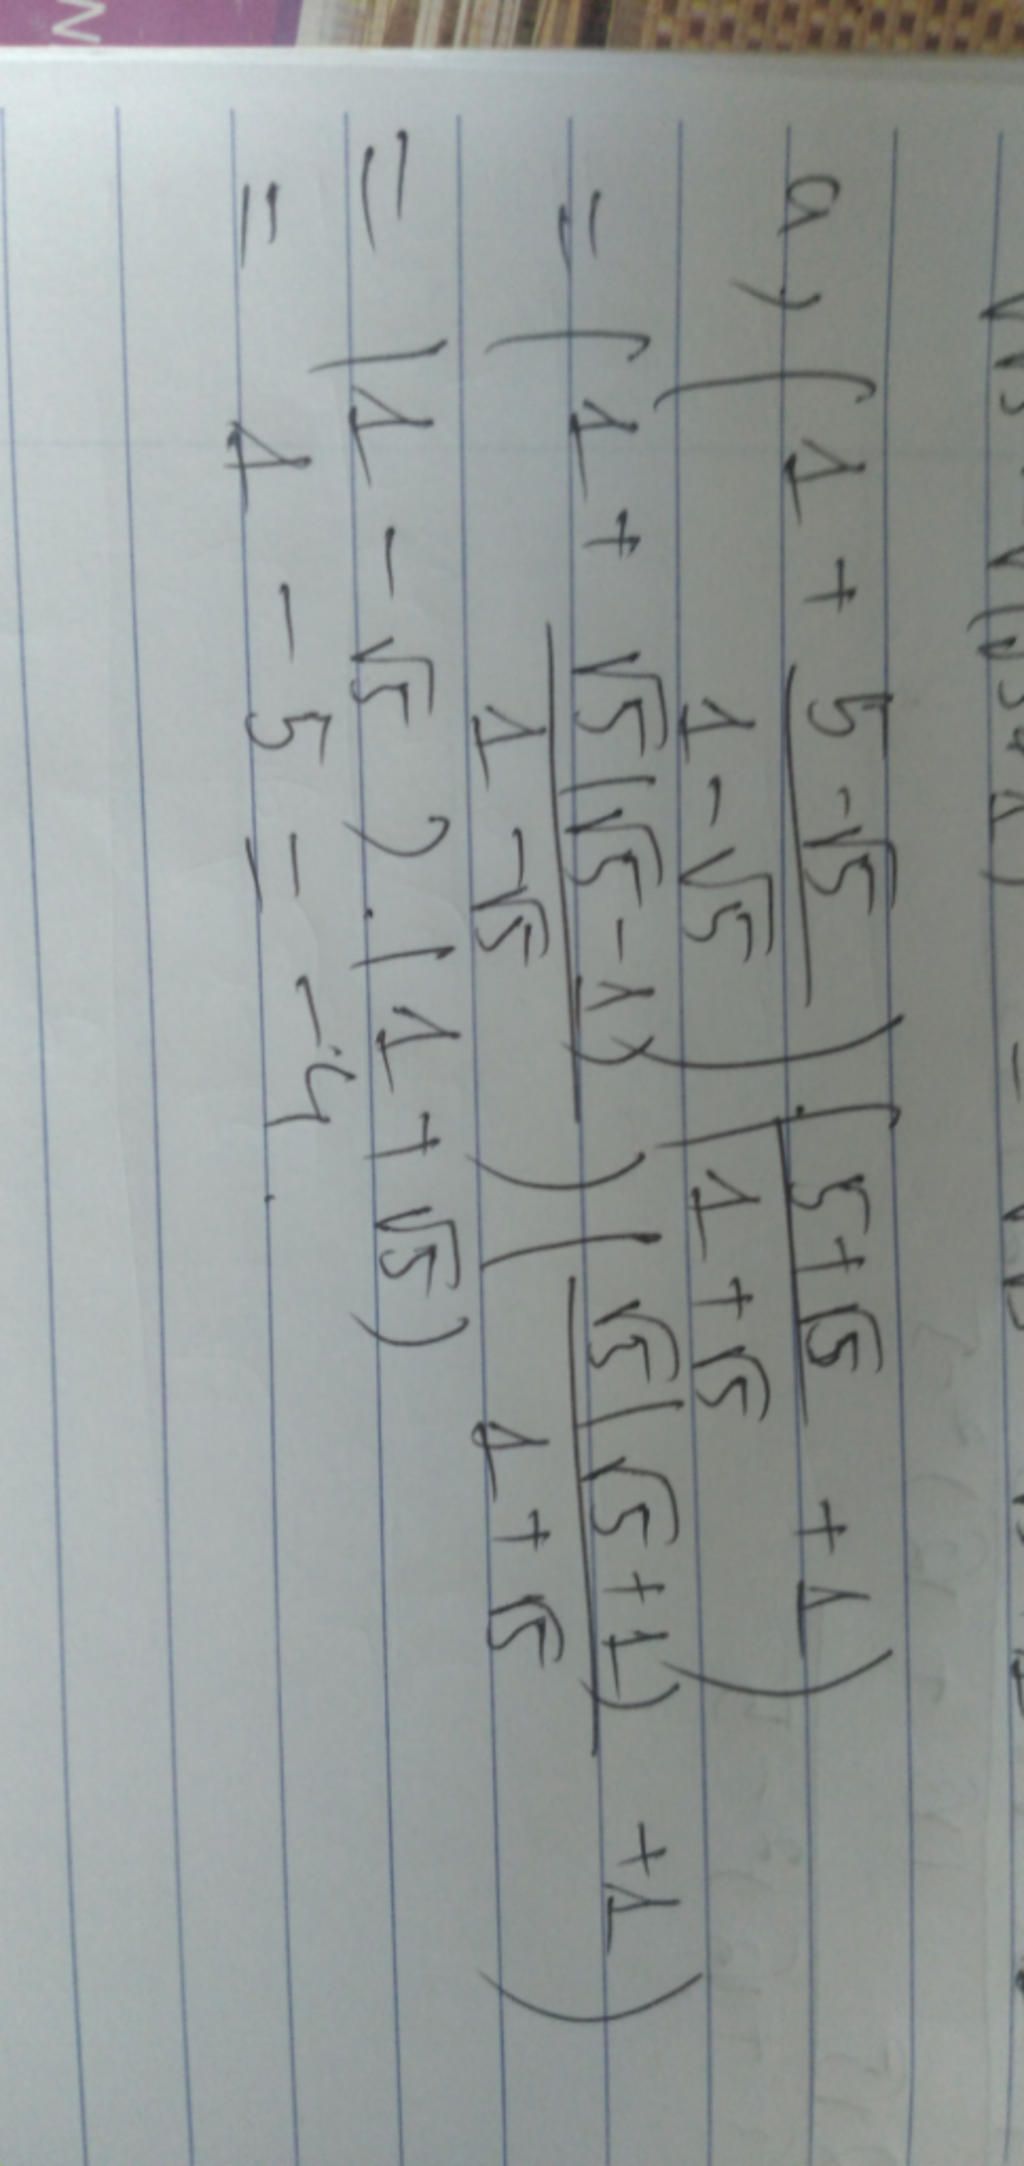 a) (1 + (5 - √5)/(1 - √5)) ((5 + √5)/(1 + √5) + 1)
= (1 + √5(√5 - 1)/(1 - √5)) (√5(√5 + 1)/(1 + √5) + 1)
= (1 - √5).(1 + √5)
= 1 - 5 = -4.
N